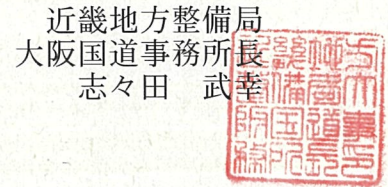 近畿地方整備局
大阪国道事務所長
志々田　武幸